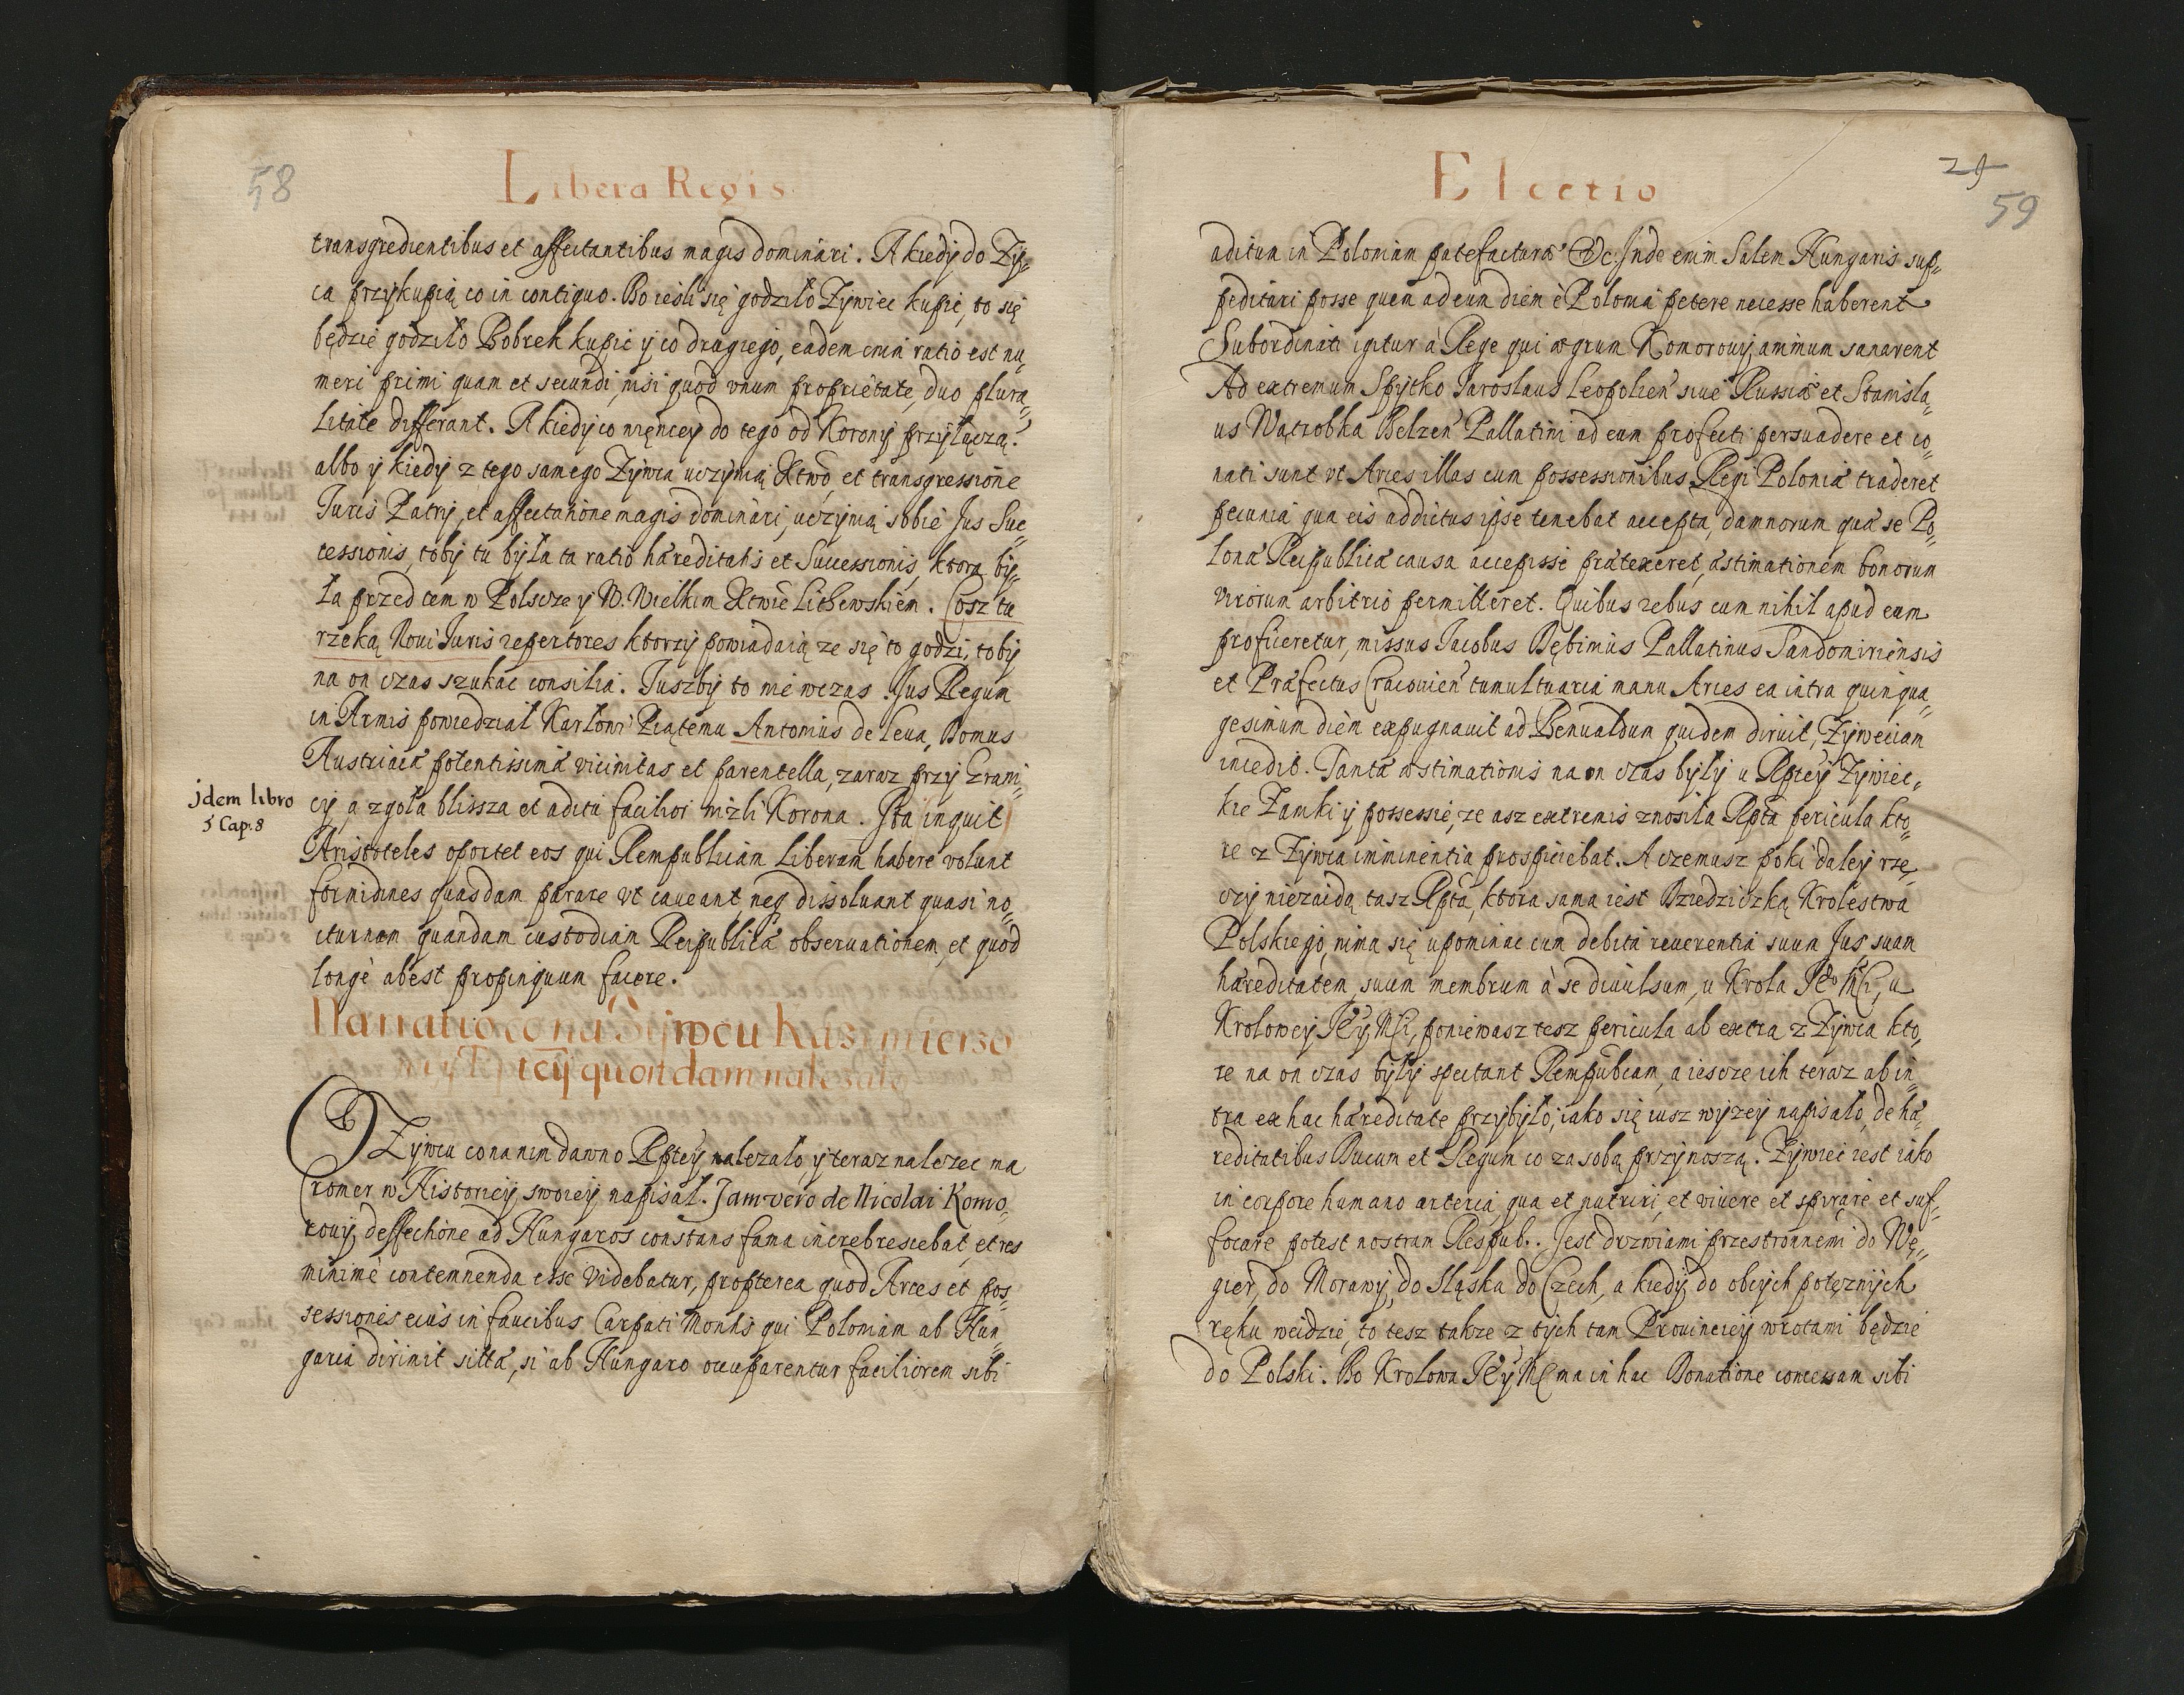 58
Libera Regis
transgredientibus et affectantibus magis dominari. A kiedy do Zy=
ca przykupią co in contiguo. Bo iesli się godziło Zywiec kupic, to się
będzie godziło Bobrek kupic y co drugiego, eadem enim ratio est nu=
meri primi quam et secundi, nisi quod vnum proprietate, duo plura=
litate differant. A kiedy co więncey do tego od Korony przyłączą.
albo y kiedy z tego samego Zywca uczynią Xtwo, et transgressione
Iuris Patry, et affectatione magis dominari, uczynią sobie Jus Suc=
cessionis, toby tu była ta ratio hæreditatis et Successionis, ktora by=
ła przed tem w Polscze y W. Wielkim Xtwie Lithewskiem. Cosz tu
rzeką Noui Iuris repertores ktorzy powiadaią ze się to godzi, toby
na on czas szukac consilia. Iuszby to nie wczas. Jus Regum
in Armis powiedział Karłowi Piątemu Antonius de Leua, Domus
Austriaca potentissima vicinitas et parentella, zaraz przy Grani=
cy, a zgoła blissza et aditu facilior nizli Korona. Ita inquit
Jdem libro
5 Cap. 8
Aristoteles oportet eos qui Rempublicam Liberam habere volunt
formidines quasdam parare vt caueant neq dissoluant quasi no=
cturnam quandam custodiam Reipublicæ obseruationem, et quod
longè abest propinquum facere.
Narratio co na Zywcu Kasimierzo
tey quondam nalezalo
O Zywcu co na nim dawno Rptey nalezało y teraz nalezec ma
Cromer w Historiey swoiey napisał. Jam vero de Nicolai Komo=
rouij deffectione ad Hungaros constans fama increbrescebat, et res
minimè contemnenda esse videbatur, propterea quod Arces et pos=
sessiones eius in faucibus Carpati Montis qui Poloniam ab Hun=
garia dirimit sitta, si ab Hungaro occuparentur faciliorem sibi
29
59
Electio
aditum in Poloniam patefactura &c. Inde enim Salem Hungaris sup=
peditari posse quem ad eum diem è Polonia petere necesse haberent
Subordinati igitur à Rege qui ægrum Komorouij animum sanarent
Ad extremum Spytko Iaroslaus Leopolien siue Russiæ et Stanisla=
us Wątrobka Belzen Pallatini ad eum profecti persuadere et co=
nati sunt vt Arces illas cum possessionibus Regi Poloniæ traderet
pecunia qua eis addictus ipse tenebat accepta, damnorum quæ se Po=
lonæ Reipublicæ causa accepisse prætexeret, æstimationem bonorum
virorum arbitrio permitteret. Quibus rebus cum nihil apud eum
proficeretur, missus Iacobus Dębinius Pallatinus Sandomiriensis
et Præfectus Cracouien tumultuaria manu Arces ea intra quinqua=
gesimum diem expugnauit ad Benualdum quidem diruit, Zyweciam
incedit. Tanta æstimationis na on czas były u Rptey Zywiec=
kie Zamki y possessie, ze asz extremis znosiła Rpta pericula kto=
re z Zywca imminentia prospiciebat. A czemusz poki daley rze=
czy niezaidą tasz Rpta, ktora sama iest Dziedziczką Krolestwa
Polskiego, nima się upominac cum debita reuerentia suum Jus suam
hæreditatem, suum membrum à se diuulsum, u Krola Je° Mci, u
Krolowey Jey Mci, poniewasz tesz pericula ab extra z Zywca kto=
re na on czas były spectant Rempubcam, a iescze ich teraz ab in=
tra ex hac hæreditate przybyło, iako się iusz wyzey napisało, de hæ=
reditatibus Ducum et Regum co za sobą przynoszą. Zywiec iest iako
in corpore humano arteria, qua et nutriri, et viuere et spirare et suf=
focare potest nostram Respub.. Jest drzwiami przestronnemi do Wę=
gier, do Morawy, do Sląska do Czech, a kiedy do obcych potęznych
ręku weidzie, to tesz takze z tych tam Prouinciey wrotami będzie
do Polski. Bo Krolowa Jey Mc ma in hac Donatione concessam sibi